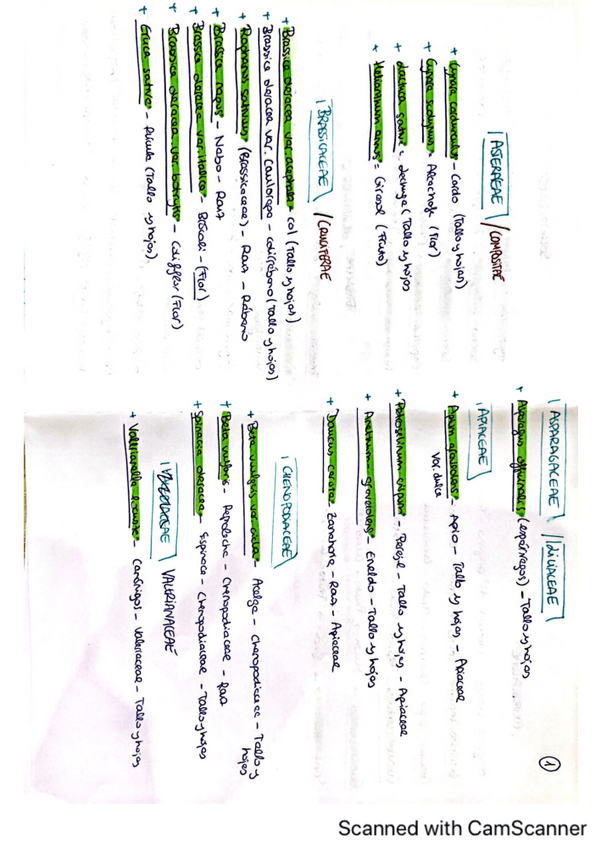 ASTERACEAE / COMPOSITAE
+ Cynara cardunculus - Cardo (Tallo y hojas)
+ Cynara scolymus = Alcachofa (Flor)
+ Lactuca sativa = Lechuga (Tallo y hojas
+ Helianthum annus = Girasol (Fruto)
BRASSICACEAE / CRUCIFERAE
+ Brassica oleracea var. acephala = col (Tallo y hojas)
+ Brassica oleracea var. Caulorapa - colirrábano (Tallo y hojas)
+ Raphanus sativus (Brassicaceae) - Raíz - Rábano
+ Brassica napus - Nabo - Raíz
+ Brassica oleracea var. italica - Brócoli - (Flor)
+ Brassica oleracea var. botrytis - Coliflor (Flor)
+ Eruca sativa - Rúcula (Tallo y hojas).
1
ASPARAGACEAE / LILIACEAE
+ Aspagus officinalis (espárragos) - Tallo y hojas
APIACEAE
+ Apium graveolens - Apio - Tallo y hojas - Apiaceae
Var. dulce
+ Petroselinum crispum - Perejil - Tallo y hojas - Apiaceae
+ Anethum graveolens - Eneldo - Tallo y hojas
+ Daucus carota - Zanahoria - Raíz - Apiaceae
CHENOPODIACEAE
+ Beta vulgaris var. cicla - Acelga - Chenopodiaceae - Tallo y
hojas
+ Beta vulgaris - Remolacha - Chenopodiaceae - Raíz
+ Spinacia oleracea - Espinaca - Chenopodiaceae - Tallo y hojas
VALERIANACEAE
+ Valerianella locusta - Canónigos - Valeriaceae - Tallo y hojas
Scanned with CamScanner